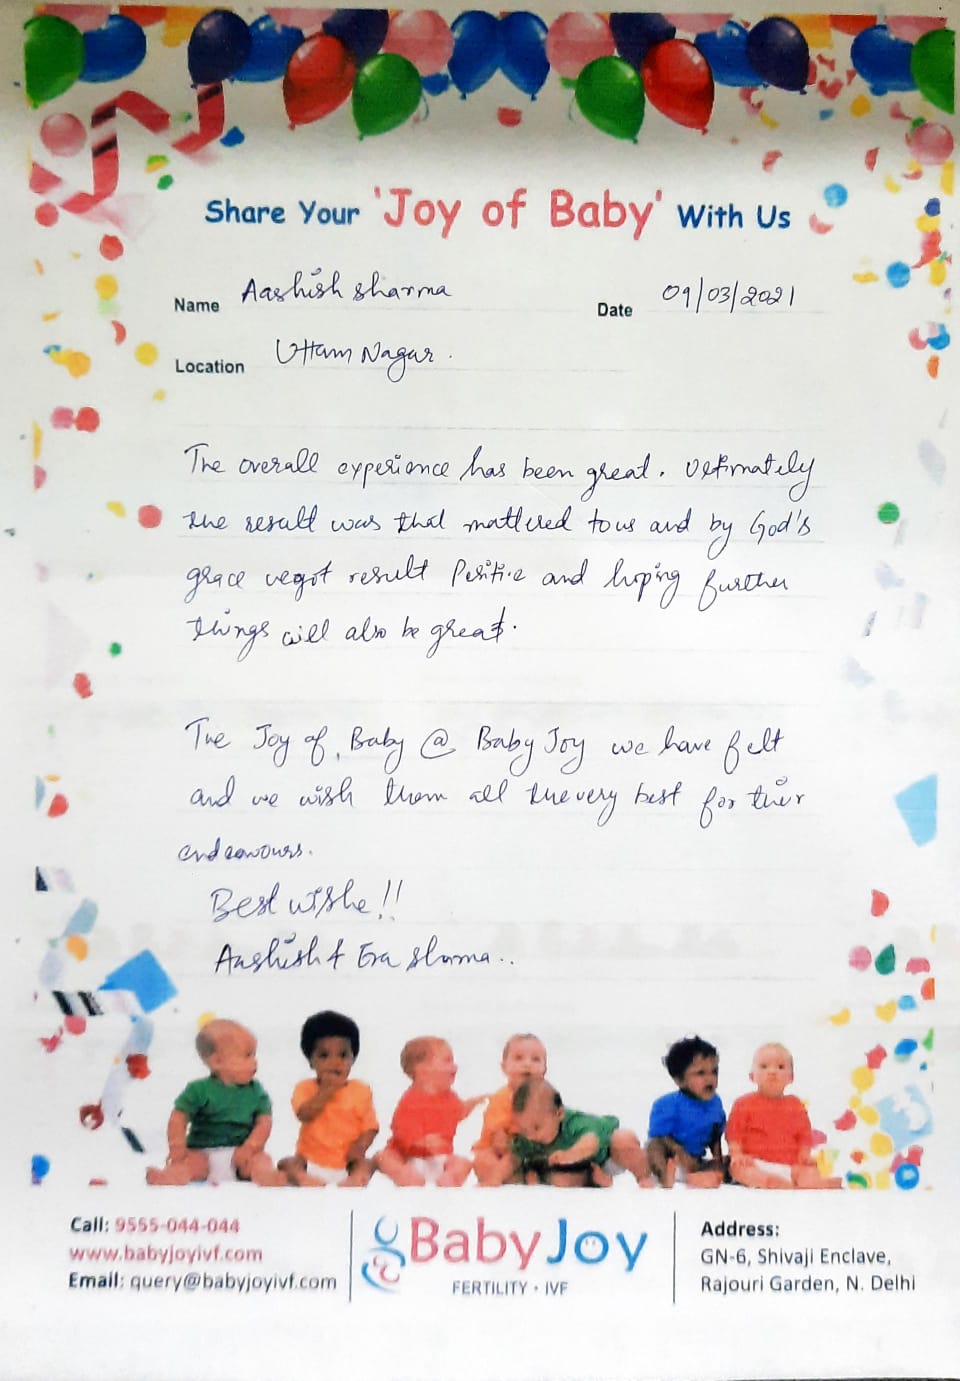 Share Your 'Joy of Baby' With Us
Name Aashish Sharma Date 09/03/2021
Location Uttam Nagar.
The overall experience has been great. Ultimately
the result was that mattered to us and by God's
grace we got result Positive and hoping further
things will also be great.
The Joy of Baby @ Baby Joy we have felt
and we wish them all the very best for their
endeavours.
Best wishe!!
Aashish & Era Sharma..
Call: 9555-044-044
www.babyjoyivf.com
Email: query@babyjoyivf.com
BabyJoy
FERTILITY · IVF
Address:
GN-6, Shivaji Enclave,
Rajouri Garden, N. Delhi